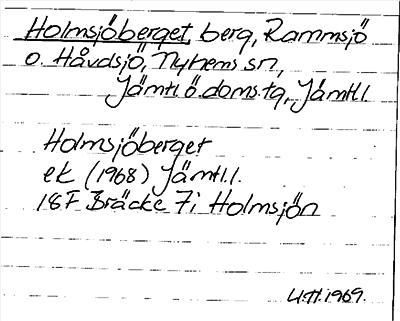 Holmsjöberget, berg, Rammsjö
o. Håvdsjö, Nyhems sn,
Jämtl. ö. doms.tg, Jämtl.l.
Holmsjöberget
ek (1968) Jämtl.l.
18F Bräcke 7i Holmsjön
U.H. 1969.